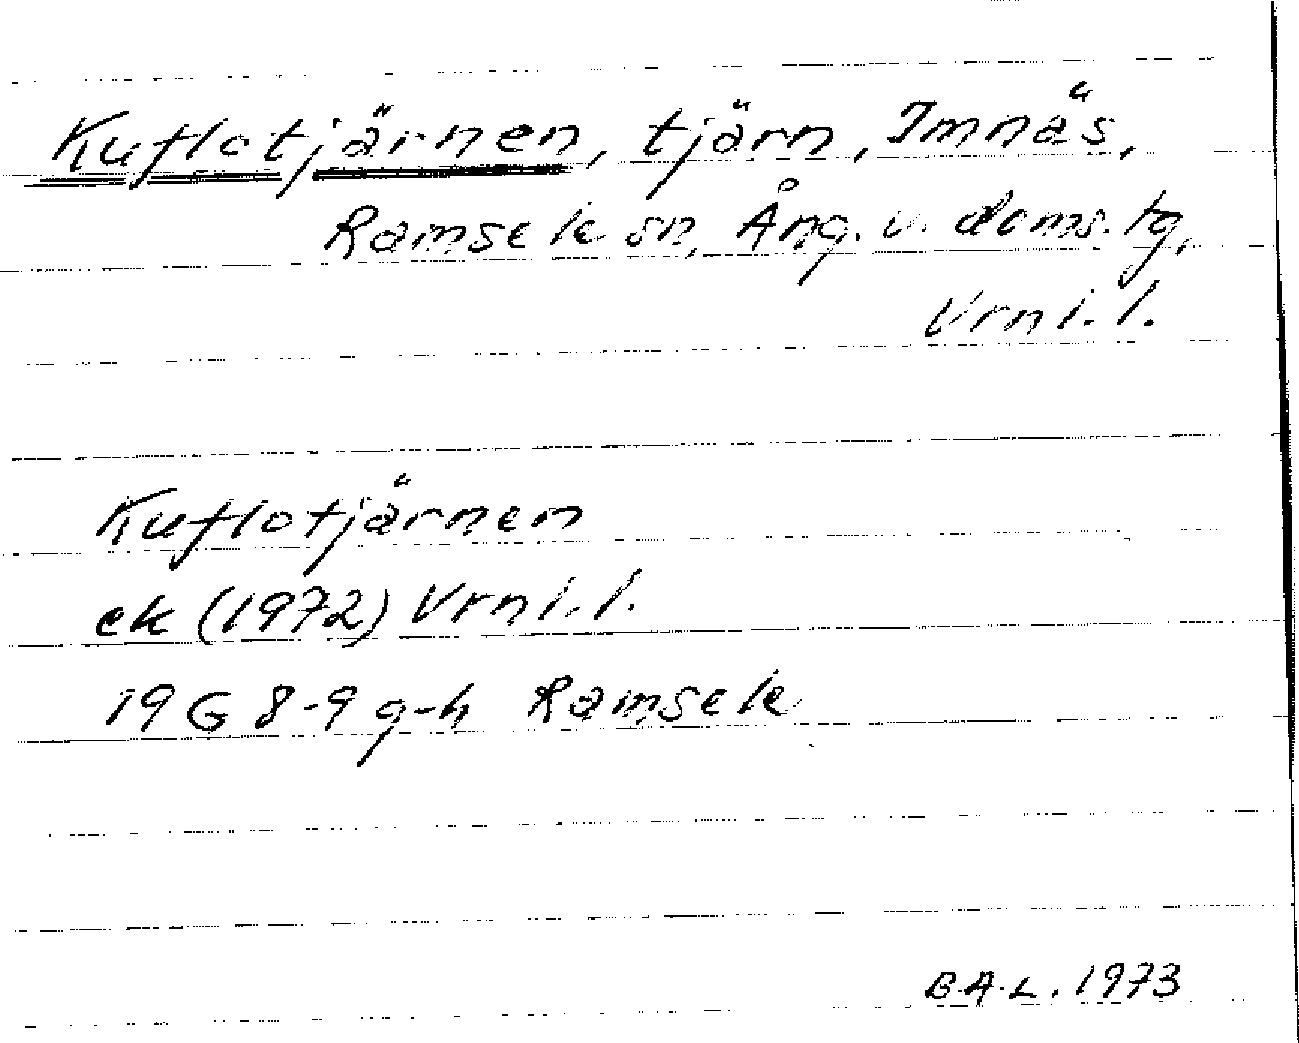 Kuflotjärnen, tjärn, Imnäs,
Ramsele sn, Ång. v. doms. tg,
Vrnl. l.
Kuflotjärnen
ek (1972) Vrnl. l.
19 G 8-9 g-h Ramsele
B.A.L. 1973